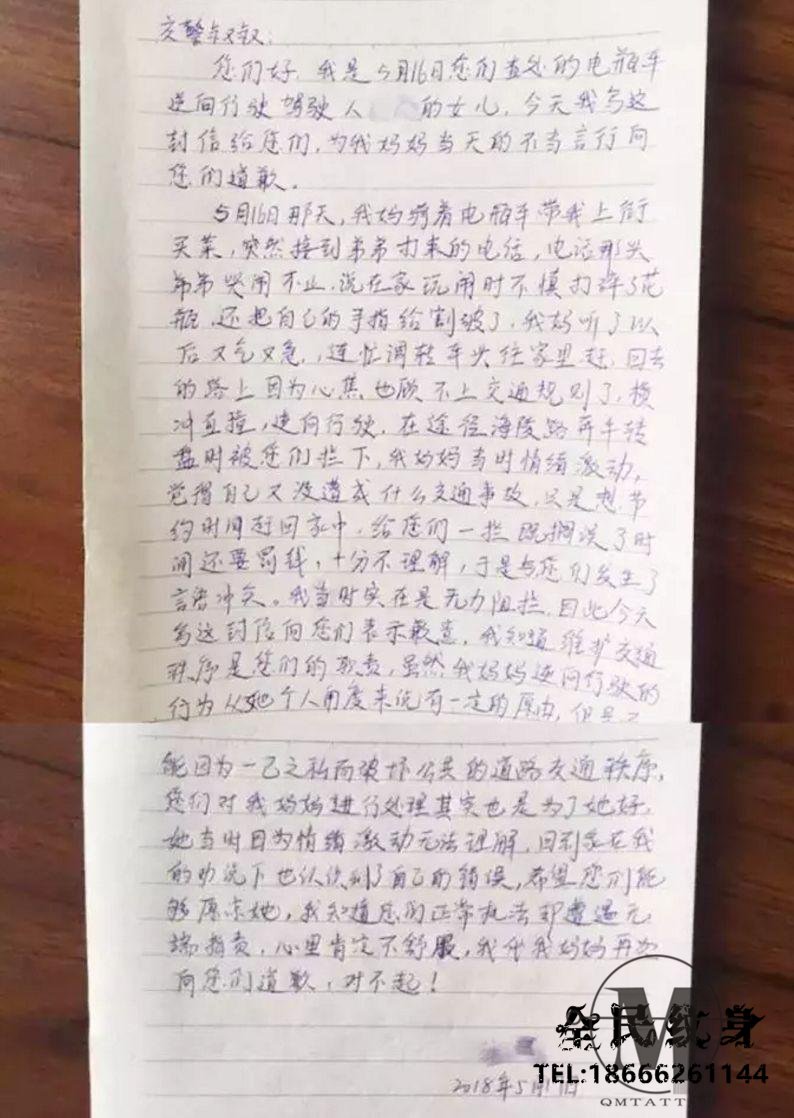 交警叔叔:
您们好,我是5月16日您们查处的电瓶车
逆向行驶驾驶人 的女儿,今天我写这
封信给您们,为我妈妈当天的不当言行向
您们道歉。
5月16日那天,我妈骑着电瓶车带我上街
买菜,突然接到弟弟打来的电话,电话那头
弟弟哭闹不止,说在家玩闹时不慎打碎了花
瓶,还把自己的手指给割破了,我妈听了以
后又气又急,连忙调转车头往家里赶,回去
的路上因为心焦也顾不上交通规则了,横
冲直撞,逆向行驶,在途径海陵路 转
盘时被您们拦下,我妈妈当时情绪激动,
觉得自己又没造成什么交通事故,只是想节
约时间赶回家中,给您们一拦既搁误了时
间还要罚钱,十分不理解,于是与您们发生了
言语冲突。我当时实在是无力阻拦,因此今天
写这封信向您们表示歉意,我知道维护交通
秩序是您们的职责,虽然我妈妈逆向行驶的
行为从她个人角度来说有一定的原由,但是不
能因为一己之私而破坏公共的道路交通秩序,
您们对我妈妈进行处理其实也是为了她好,
她当时因为情绪激动无法理解,回到家在我
的劝说下也认识到了自己的错误,希望您们能
够原谅她,我知道您们正常执法却遭遇无
端指责,心里肯定不舒服,我代我妈妈再次
向您们道歉,对不起!
2018年5月1 日
M
全民纹身
TEL:18666261144
QMTATT